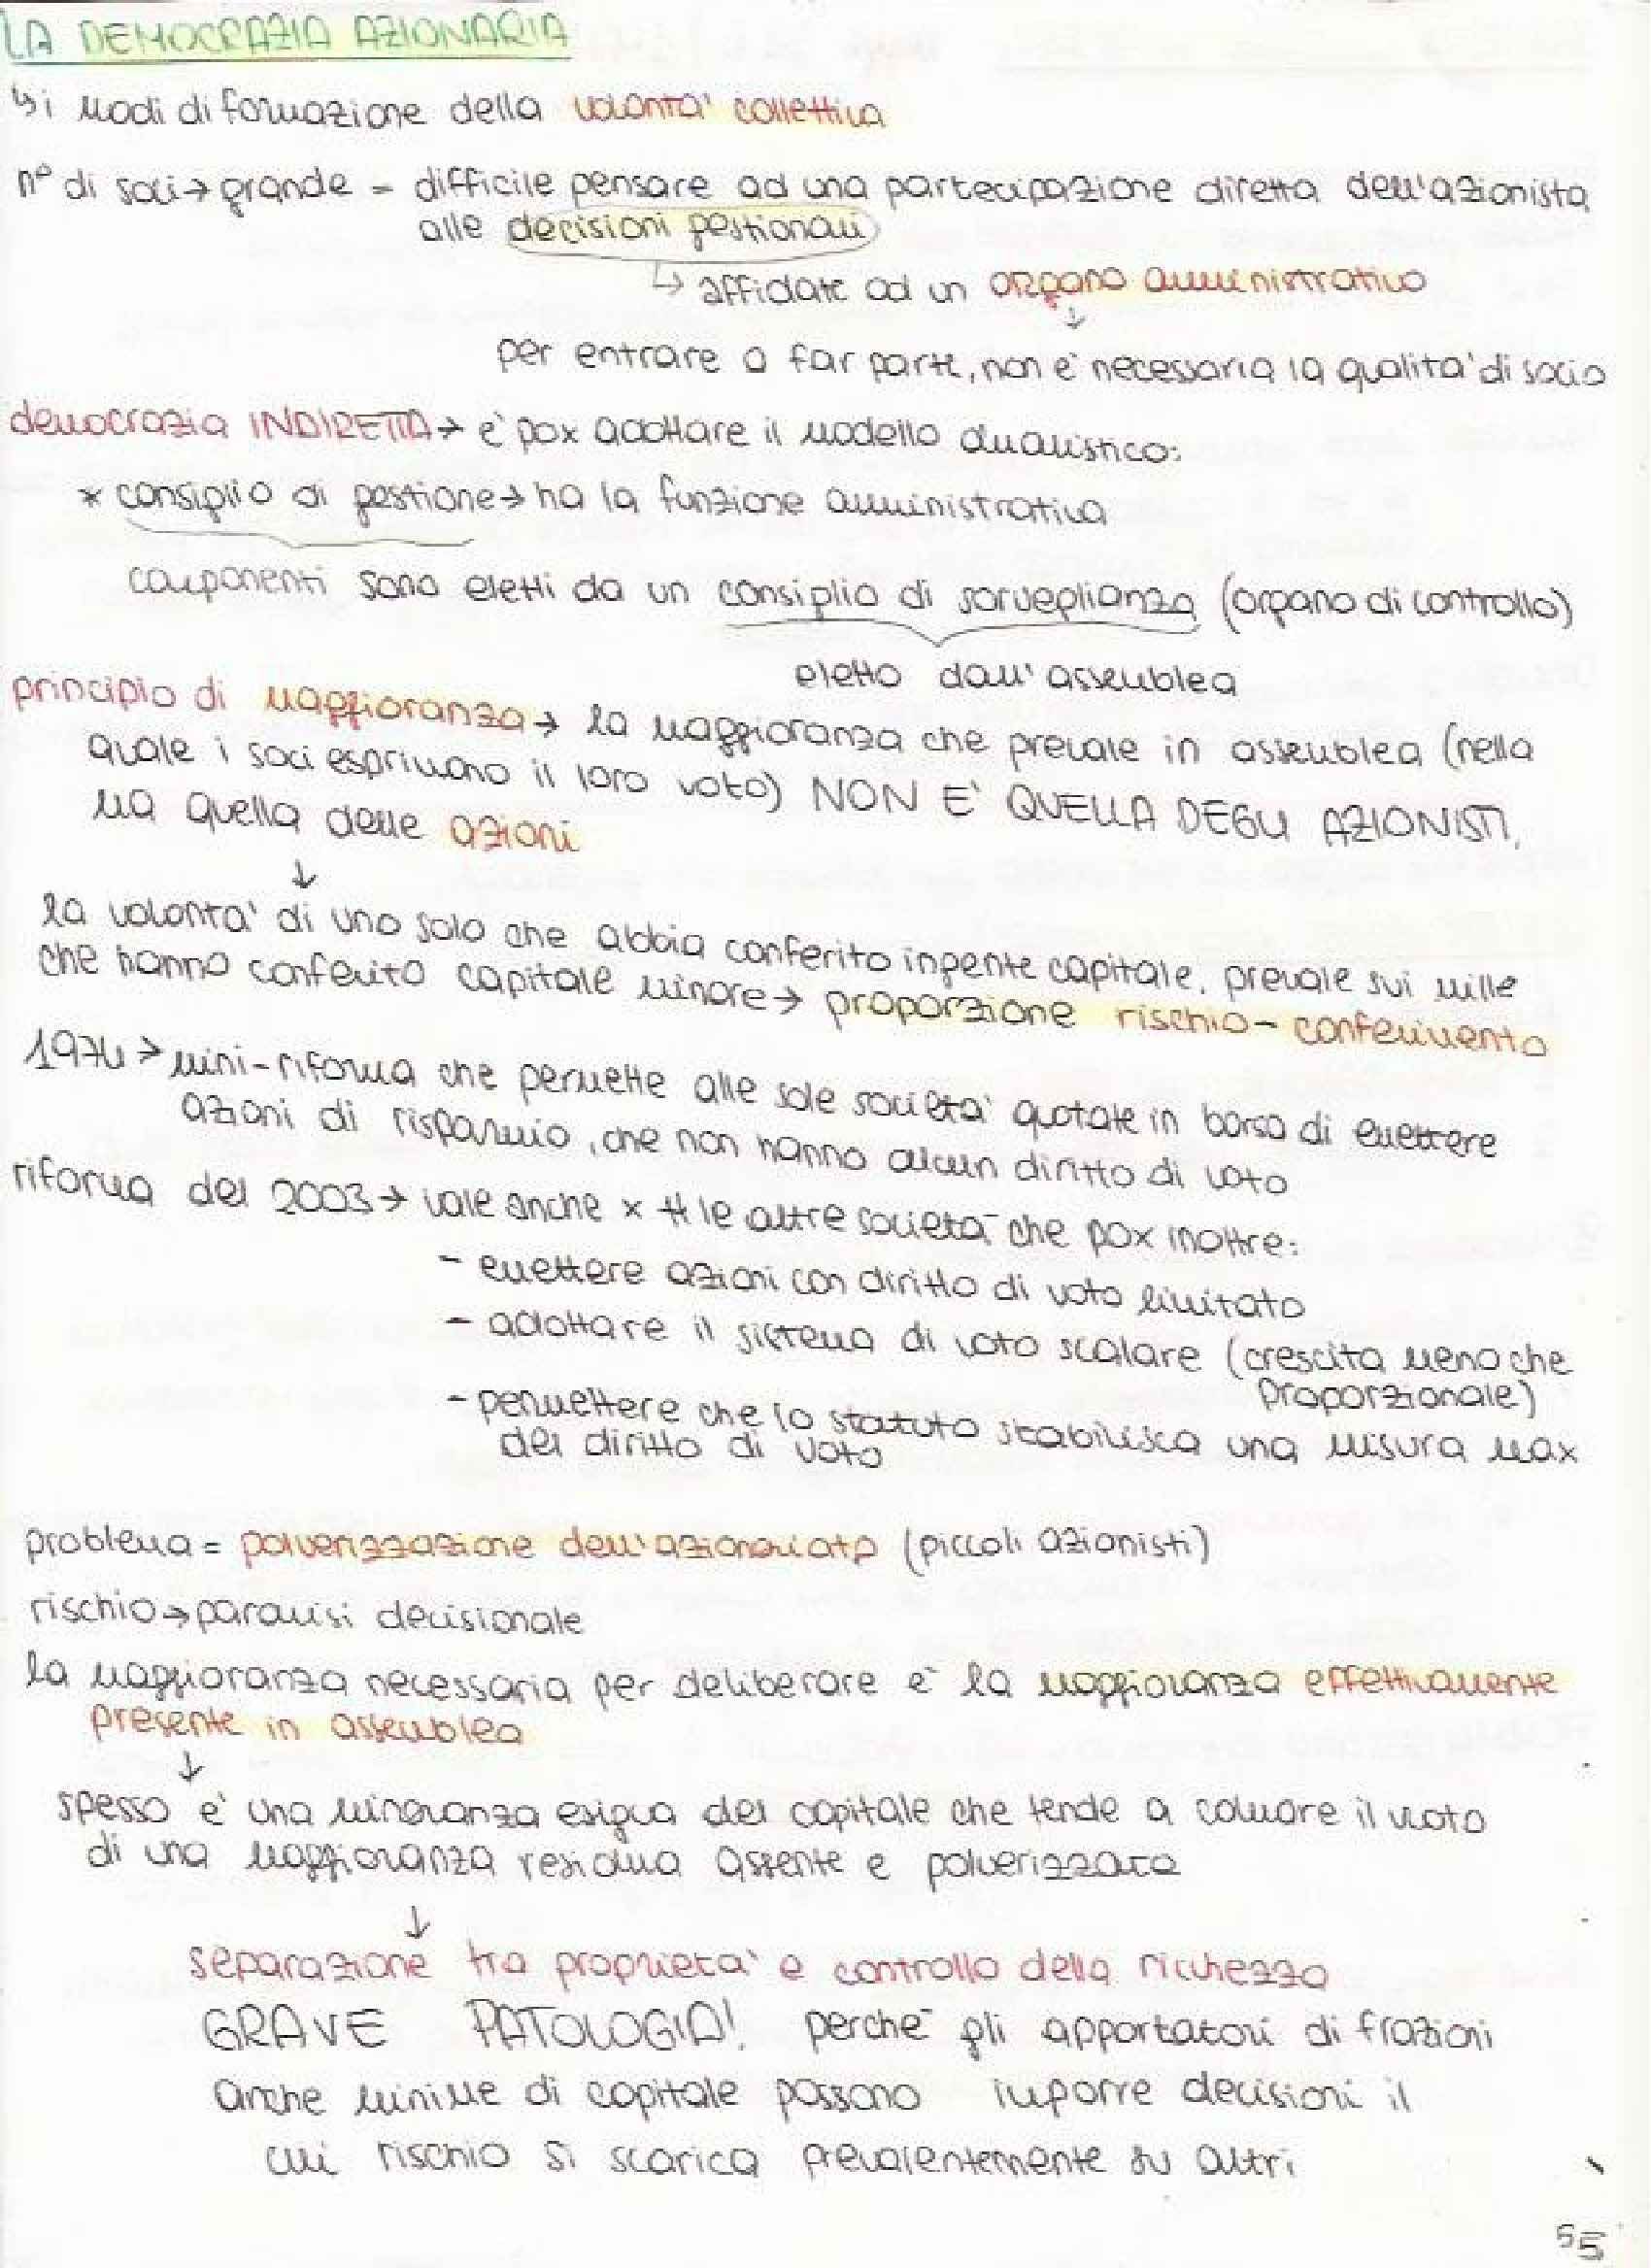 LA DEMOCRAZIA AZIONARIA
↳ i modi di formazione della volontà collettiva
n° di soci → grande = difficile pensare ad una partecipazione diretta dell'azionista
alle decisioni gestionali
↳ affidate ad un organo amministrativo
↓
per entrare a far parte, non è necessaria la qualità di socio
democrazia INDIRETTA → è pox adottare il modello dualistico:
* consiglio di gestione → ha la funzione amministrativa
componenti sono eletti da un consiglio di sorveglianza (organo di controllo)
eletto dall'assemblea
principio di maggioranza → la maggioranza che prevale in assemblea (nella
quale i soci esprimono il loro voto) NON E' QUELLA DEGLI AZIONISTI,
ma quella delle azioni
↓
la volontà di uno solo che abbia conferito ingente capitale, prevale sui mille
che hanno conferito capitale minore → proporzione rischio-conferimento
1974 > mini-riforma che permette alle sole società quotate in borsa di emettere
azioni di risparmio, che non hanno alcun diritto di voto
riforma del 2003 → vale anche x tt le altre società che pox inoltre:
- emettere azioni con diritto di voto limitato
- adottare il sistema di voto scalare (crescita meno che
proporzionale)
- permettere che lo statuto stabilisca una misura max
del diritto di voto
problema = polverizzazione dell'azionariato (piccoli azionisti)
rischio → paralisi decisionale
la maggioranza necessaria per deliberare è la maggioranza effettivamente
presente in assemblea
↓
spesso è una minoranza esigua del capitale che tende a colmare il vuoto
di una maggioranza residua assente e polverizzata
↓
separazione tra proprietà e controllo della ricchezza
GRAVE PATOLOGIA! perchè gli apportatori di frazioni
anche minime di capitale possono imporre decisioni il
cui rischio si scarica prevalentemente su altri
55